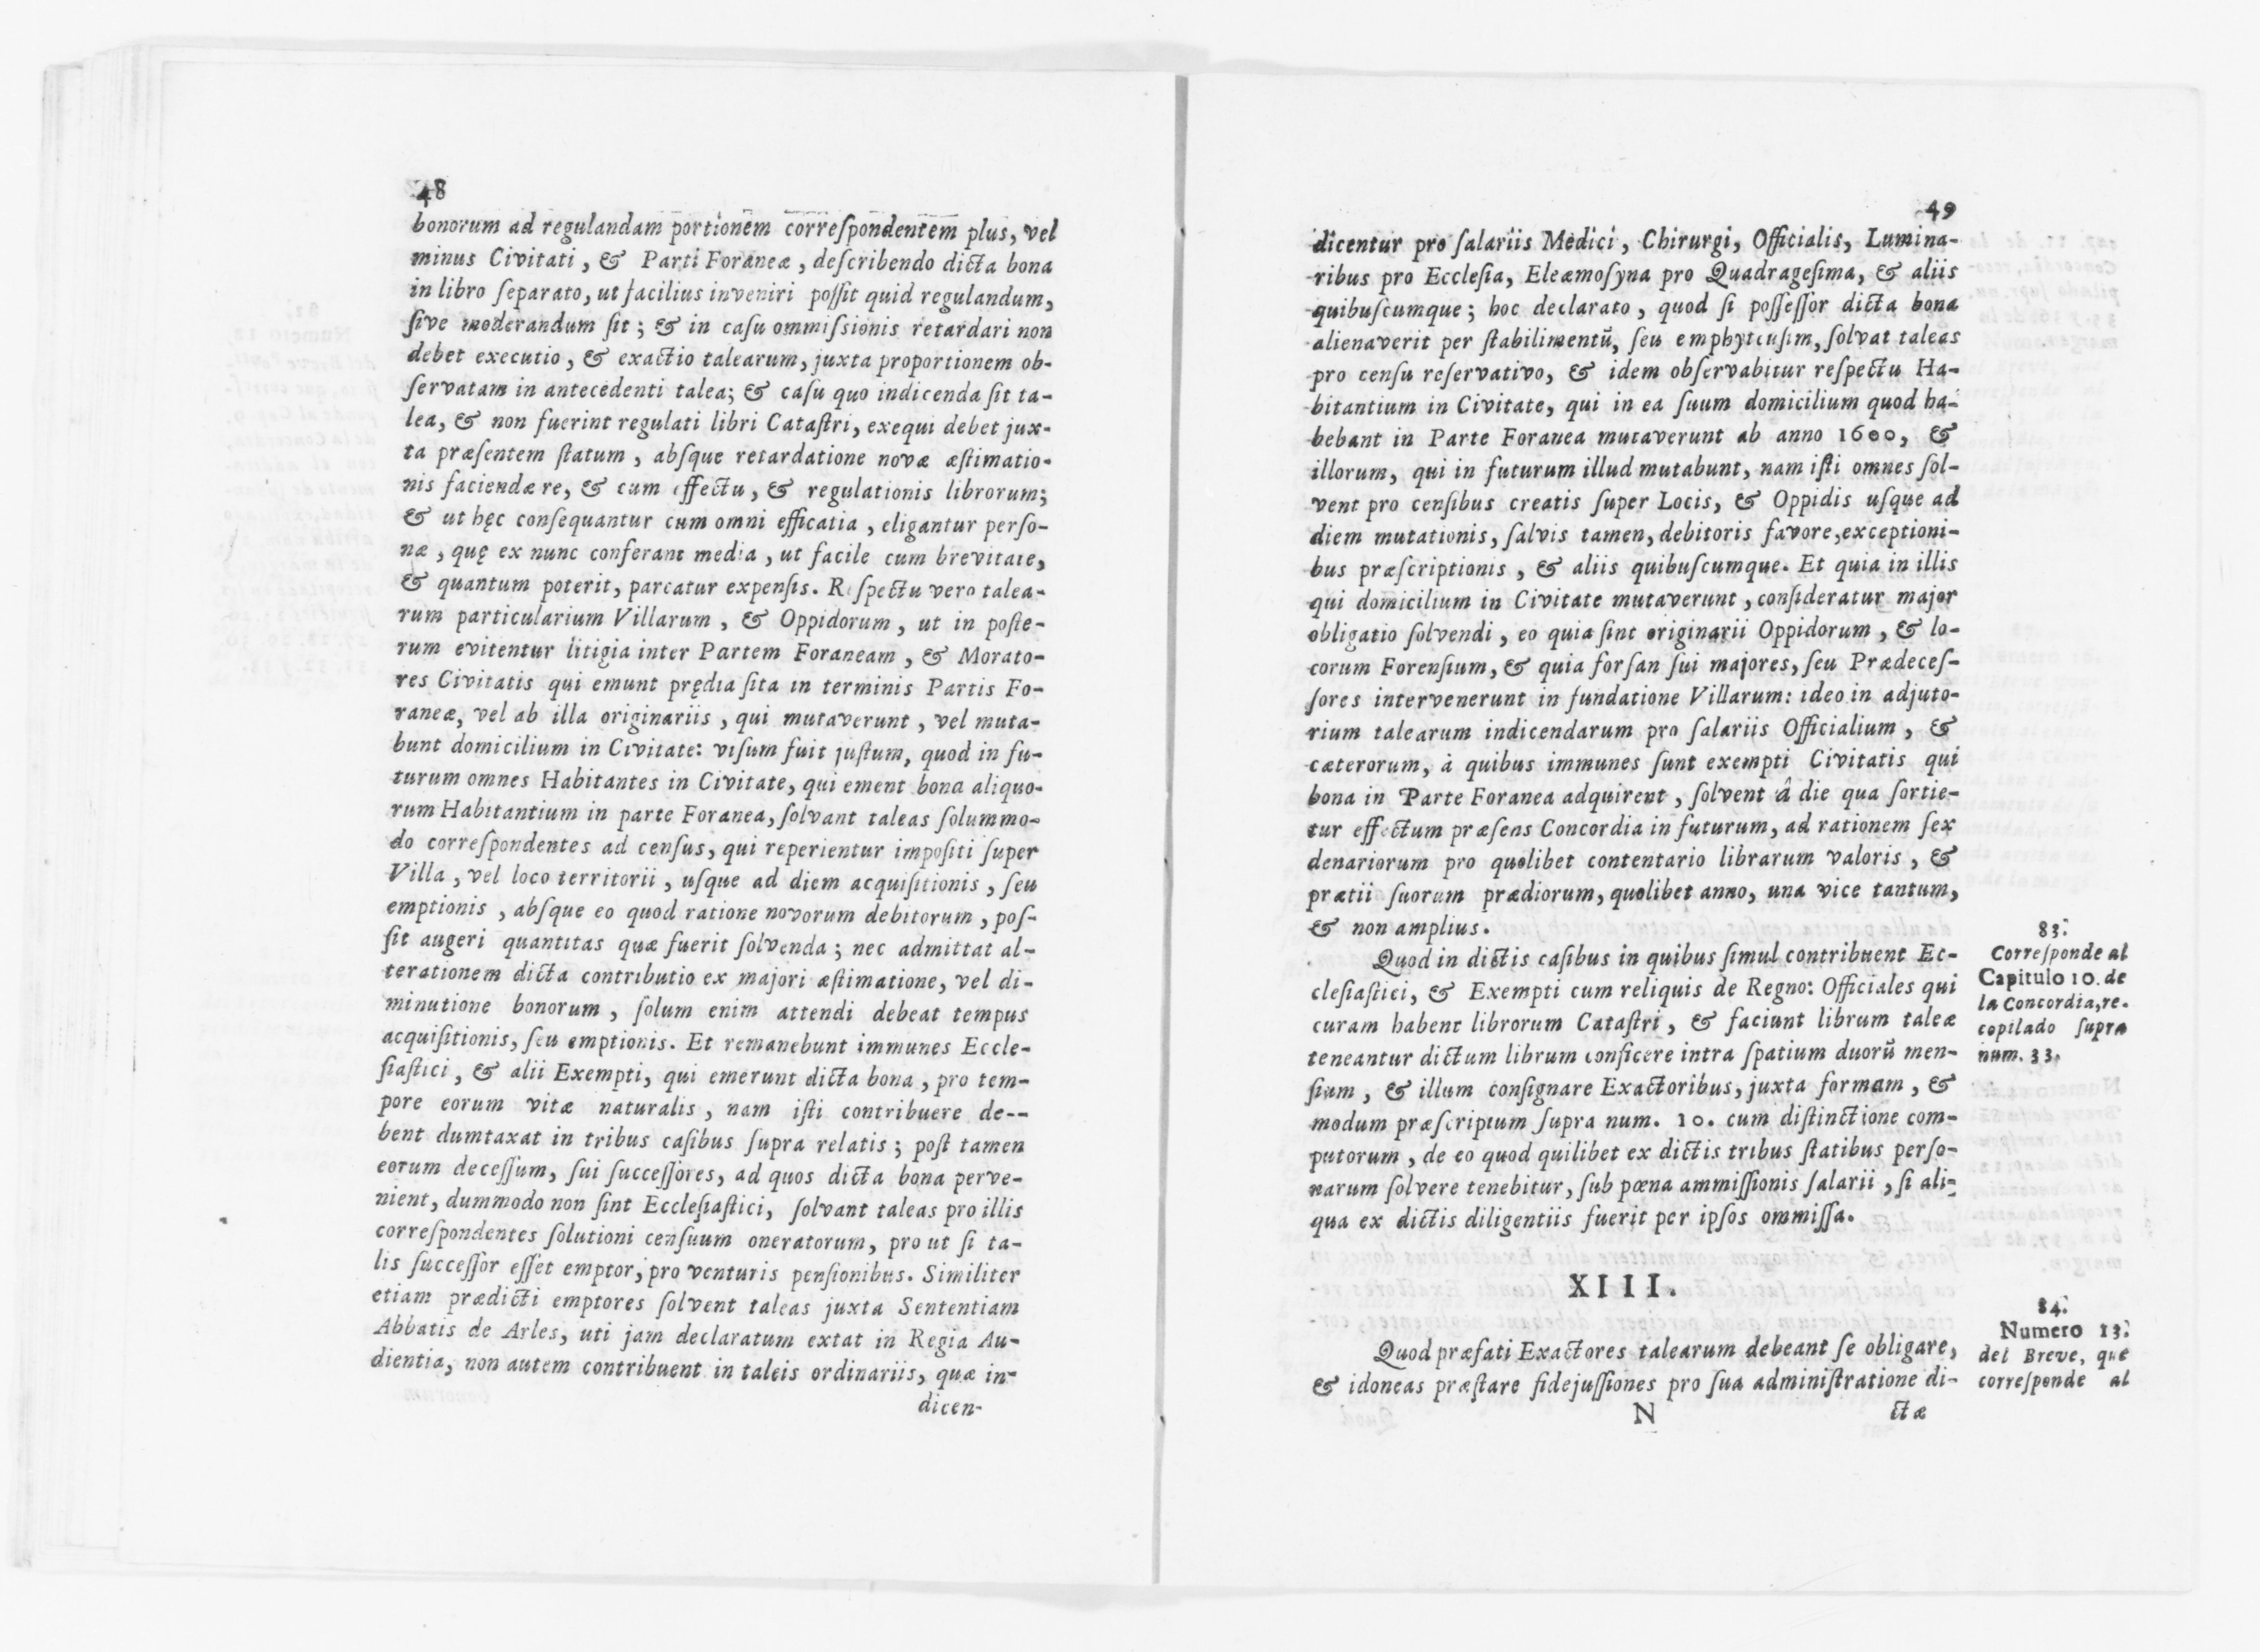 48
bonorum ad regulandam portionem correſpondentem plus, vel
minus Civitati, & Parti Foraneæ, deſcribendo dicta bona
in libro ſeparato, ut facilius inveniri poſſit quid regulandum,
ſive moderandum ſit; & in caſu ommiſsionis retardari non
debet executio, & exactio talearum, juxta proportionem ob-
ſervatam in antecedenti talea; & caſu quo indicenda ſit ta-
lea, & non fuerint regulati libri Cataſtri, exequi debet jux-
ta præſentem ſtatum, abſque retardatione novæ æſtimatio-
nis faciendæ re, & cum effectu, & regulationis librorum;
& ut hęc conſequantur cum omni efficatia, eligantur perſo-
næ, quę ex nunc conferant media, ut facile cum brevitate,
& quantum poterit, parcatur expenſis. Reſpectu vero talea-
rum particularium Villarum, & Oppidorum, ut in poſte-
rum evitentur litigia inter Partem Foraneam, & Morato-
res Civitatis qui emunt prędia ſita in terminis Partis Fo-
raneæ, vel ab illa originariis, qui mutaverunt, vel muta-
bunt domicilium in Civitate: viſum fuit juſtum, quod in fu-
turum omnes Habitantes in Civitate, qui ement bona aliquo-
rum Habitantium in parte Foranea, ſolvant taleas ſolummo-
do correſpondentes ad cenſus, qui reperientur impoſiti ſuper
Villa, vel loco territorii, uſque ad diem acquiſitionis, ſeu
emptionis, abſque eo quod ratione novorum debitorum, poſ-
ſit augeri quantitas quæ fuerit ſolvenda; nec admittat al-
terationem dicta contributio ex majori æſtimatione, vel di-
minutione bonorum, ſolum enim attendi debeat tempus
acquiſitionis, ſeu emptionis. Et remanebunt immunes Eccle-
ſiaſtici, & alii Exempti, qui emerunt dicta bona, pro tem-
pore eorum vitæ naturalis, nam iſti contribuere de--
bent dumtaxat in tribus caſibus ſupra relatis; poſt tamen
eorum deceſſum, ſui ſucceſſores, ad quos dicta bona perve-
nient, dummodo non ſint Eccleſiaſtici, ſolvant taleas pro illis
correſpondentes ſolutioni cenſuum oneratorum, pro ut ſi ta-
lis ſucceſſor eſſet emptor, pro venturis penſionibus. Similiter
etiam prædicti emptores ſolvent taleas juxta Sententiam
Abbatis de Arles, uti jam declaratum extat in Regia Au-
dientia, non autem contribuent in taleis ordinariis, quæ in-
dicen-
49
dicentur pro ſalariis Medici, Chirurgi, Officialis, Lumina-
ribus pro Eccleſia, Eleæmoſyna pro Quadrageſima, & aliis
quibuſcumque; hoc declarato, quod ſi poſſeſſor dicta bona
alienaverit per ſtabilimentū, ſeu emphyteuſim, ſolvat taleas
pro cenſu reſervativo, & idem obſervabitur reſpectu Ha-
bitantium in Civitate, qui in ea ſuum domicilium quod ha-
bebant in Parte Foranea mutaverunt ab anno 1600, &
illorum, qui in futurum illud mutabunt, nam iſti omnes ſol-
vent pro cenſibus creatis ſuper Locis, & Oppidis uſque ad
diem mutationis, ſalvis tamen, debitoris favore, exceptioni-
bus præſcriptionis, & aliis quibuſcumque. Et quia in illis
qui domicilium in Civitate mutaverunt, conſideratur major
obligatio ſolvendi, eo quia ſint originarii Oppidorum, & lo-
corum Forenſium, & quia forſan ſui majores, ſeu Prædeceſ-
ſores intervenerunt in fundatione Villarum: ideo in adjuto-
rium talearum indicendarum pro ſalariis Officialium, &
cæterorum, à quibus immunes ſunt exempti Civitatis qui
bona in Parte Foranea adquirent, ſolvent â die qua ſortie-
tur effectum præſens Concordia in futurum, ad rationem ſex
denariorum pro quolibet contentario librarum valoris, &
prætii ſuorum prædiorum, quolibet anno, una vice tantum,
& non amplius.
Quod in dictis caſibus in quibus ſimul contribuent Ec-
cleſiaſtici, & Exempti cum reliquis de Regno: Officiales qui
curam habent librorum Cataſtri, & faciunt librum taleæ
teneantur dictum librum conficere intra ſpatium duorū men-
ſium, & illum conſignare Exactoribus, juxta formam, &
modum præſcriptum ſupra num. 10. cum diſtinctione com-
putorum, de eo quod quilibet ex dictis tribus ſtatibus perſo-
narum ſolvere tenebitur, ſub pœna ammiſſionis ſalarii, ſi ali-
qua ex dictis diligentiis fuerit per ipſos ommiſſa.
83.
Correſponde al
Capitulo 10. de
la Concordia, re-
copilado ſupra
num. 33.
XIII.
Quod præfati Exactores talearum debeant ſe obligare,
& idoneas præſtare fidejuſſiones pro ſua adminiſtratione di-
84.
Numero 13.
del Breve, que
correſponde al
N
ctæ